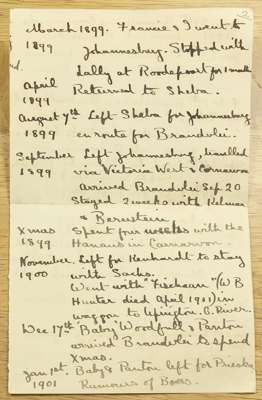 2
March 1899. Francie & I went to
1899 Johannesburg. Stopped with
Lally at Roodepoort for 1 month
April Returned to Sheba.
1899
August 7th Left Sheba for Johannesburg
1899 en route for Brandvlei.
September Left Johannesburg, travelled
1899 via Victoria West & Carnarvon
Arrived Brandvlei Sep 20
Stayed 2 weeks with Kelman
& Bernstein
Xmas Spent four weeks with the
1899 Hanaus in Carnarvon.
November. Left for Kenhardt to stay
1900 with Sachs.
Went with "Fischean" (W B
Hunter died April 1911) in
waggon to Upington. O. River.
Dec 17th "Baby" Woodfull & Panton
arrived Brandvlei to spend
Xmas.
Jan 1st. Baby & Panton left for Prieska
1901 Rumours of Boers.